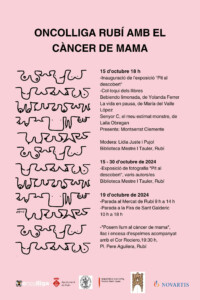 ONCOLLIGA RUBÍ AMB EL
CÀNCER DE MAMA
15 d'octubre 18 h
-Inauguració de l'exposició "Pit al
descobert".
-Col·loqui dels llibres
Bebiendo limonada, de Yolanda Ferrer
La vida en pausa, de María del Valle
López
Senyor C. el meu estimat monstre, de
Laila Obregan
Presenta: Montserrat Clemente
Modera: Lidia Juste i Pujol
Biblioteca Mestre I Tauler, Rubí.
15 - 30 d'octubre de 2024
-Exposició de fotografia "Pit al
descobert", varis autors/es
Biblioteca Mestre I Tauler, Rubí.
19 d'octubre de 2024
-Parada al Mercat de Rubí 9 h a 14 h
-Parada a la Fira de Sant Galderic
10 h a 18 h
-"Posem llum al càncer de mama",
llaç i encesa d'espelmes acompanyat
amb el Cor Rociero, 19:30 h.
Pl. Pere Aguilera, Rubí.
NOVARTIS